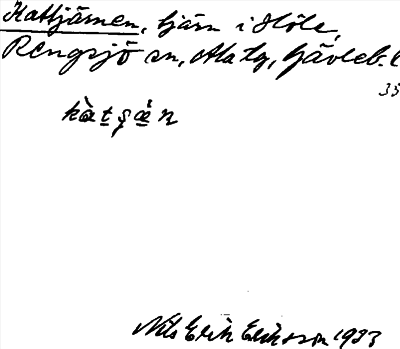 Kattjärnen, tjärn i Höle,
Rengsjö sn, Ala tg, Gävleb. l
35
Nils Erik Eriksson 1933